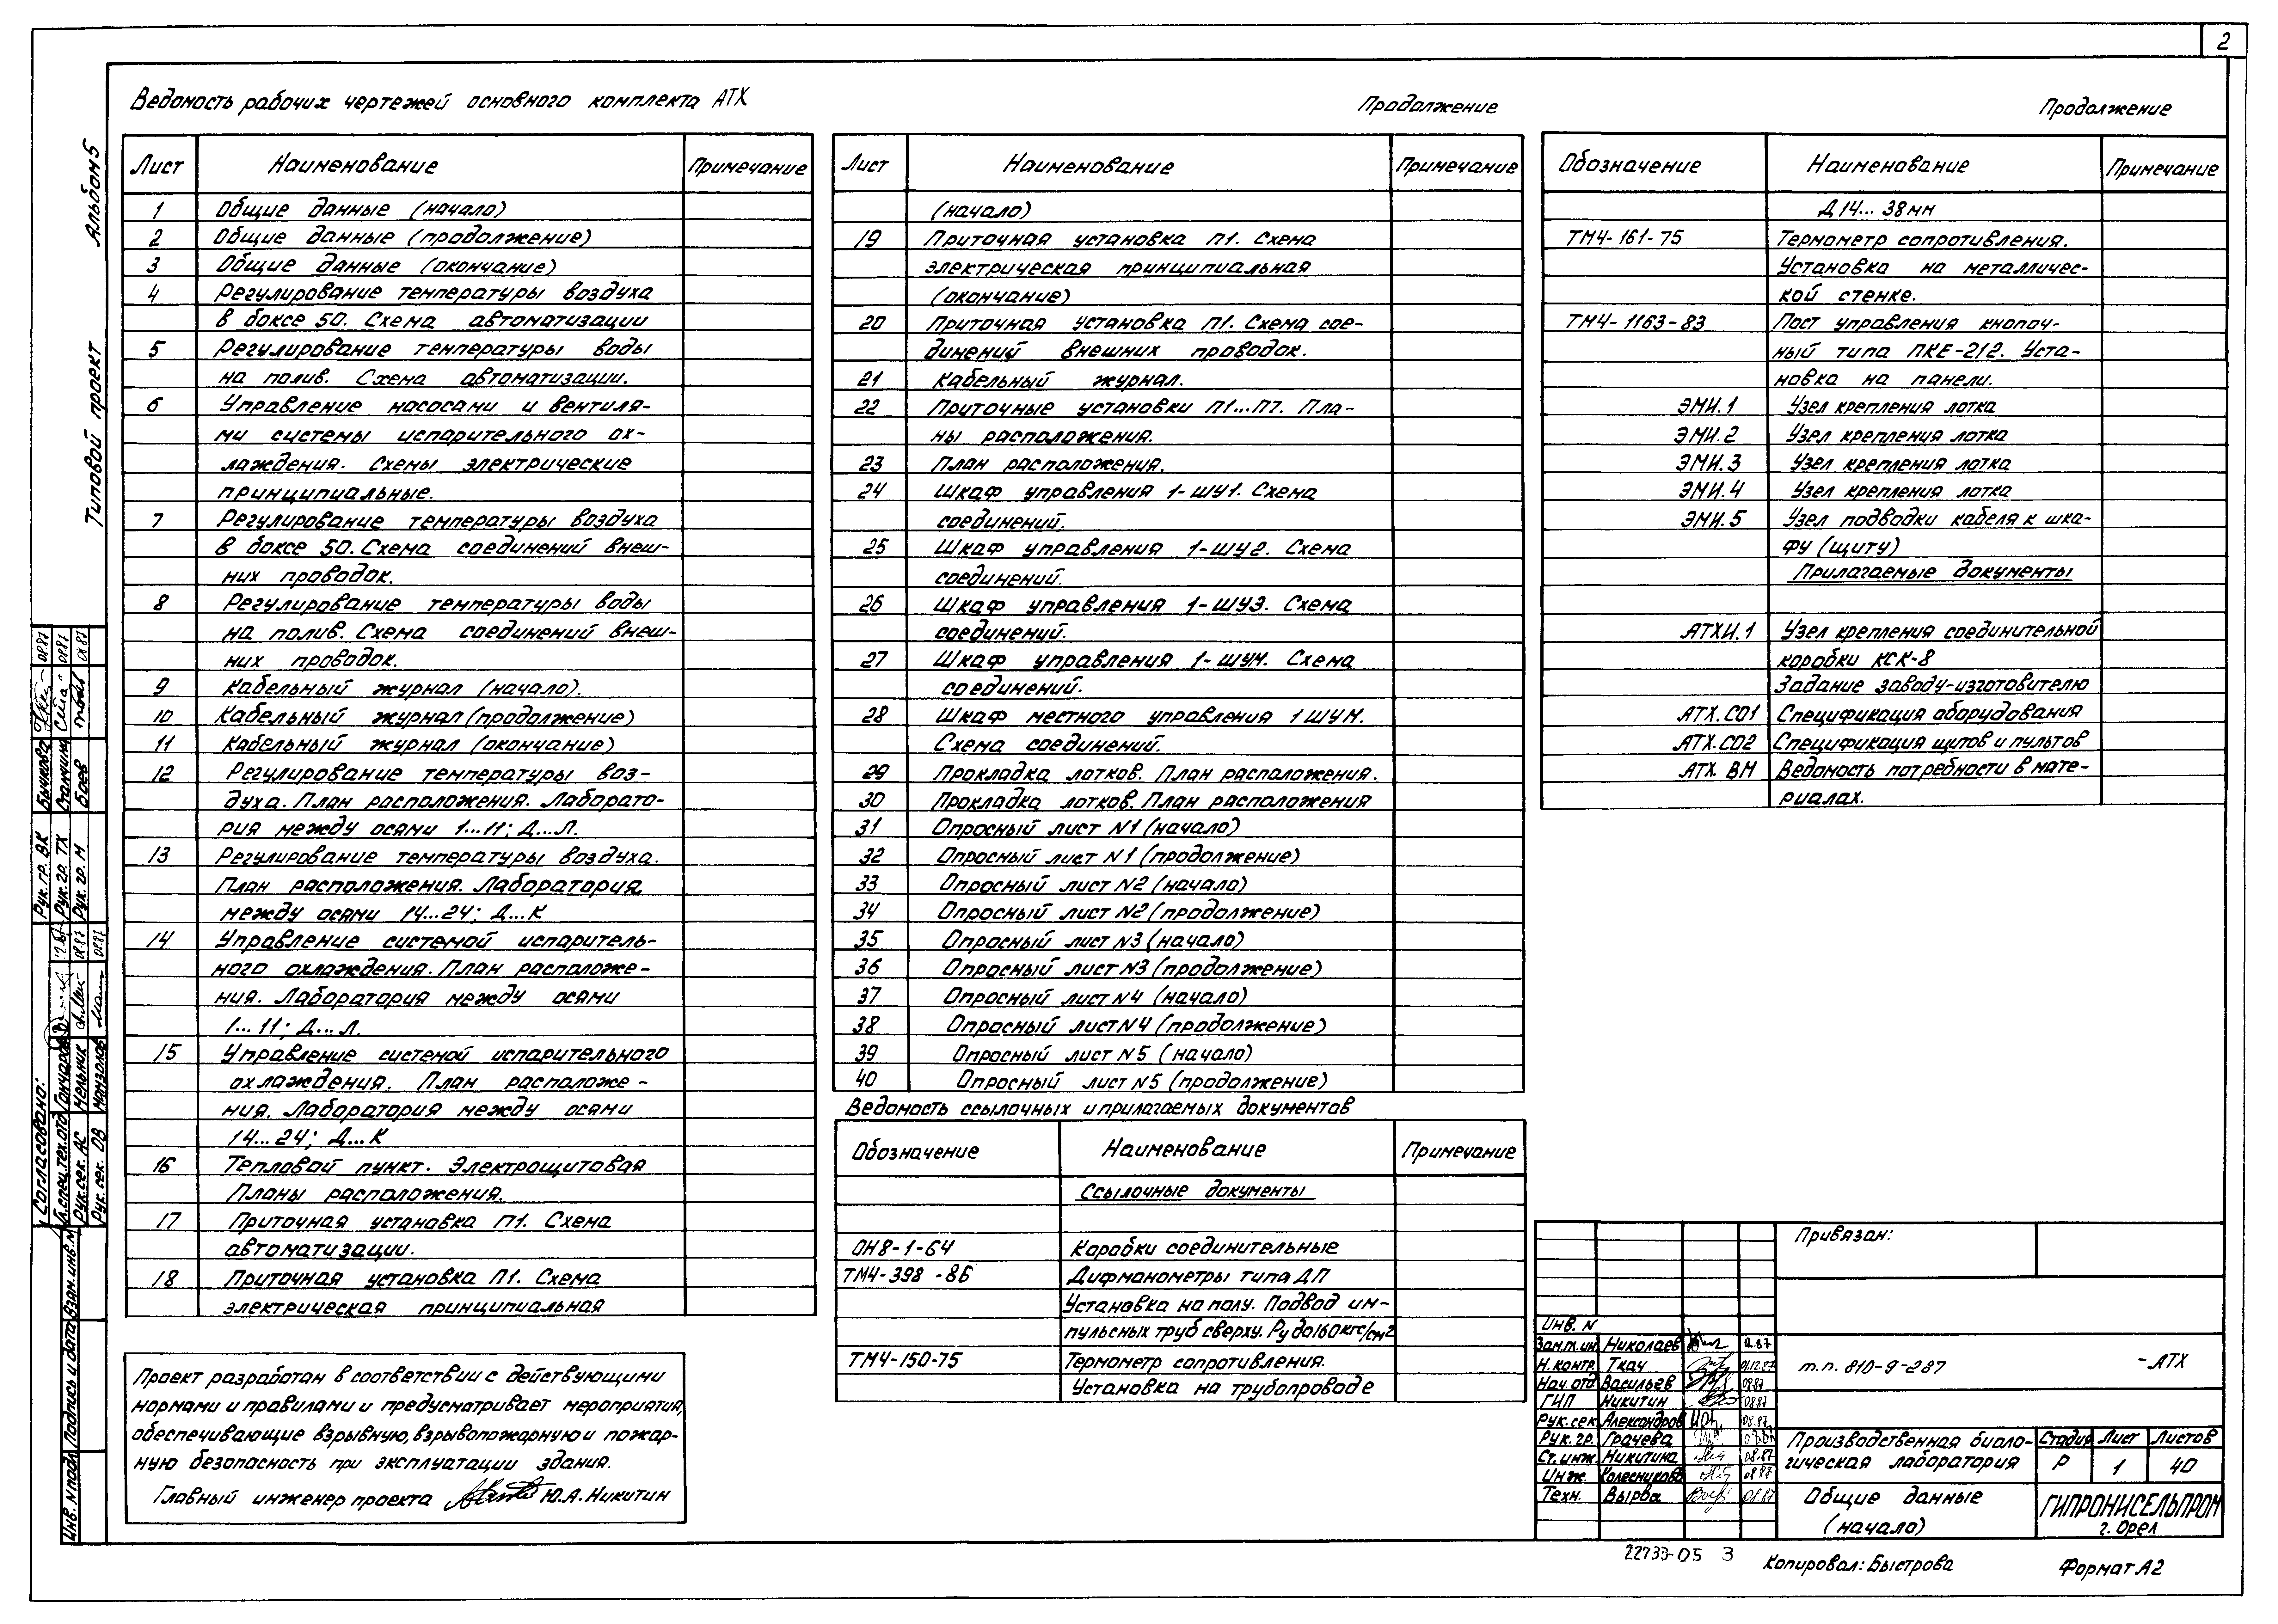 2
Ведомость рабочих чертежей основного комплекта АТХ
Лист Наименование Примечание
1 Общие данные (начало)
2 Общие данные (продолжение)
3 Общие данные (окончание)
4 Регулирование температуры воздуха
в боксе 50. Схема автоматизации
5 Регулирование температуры воды
на полив. Схема автоматизации.
6 Управление насосами и вентиля-
ми системы испарительного ох-
лаждения. Схемы электрические
принципиальные.
7 Регулирование температуры воздуха
в боксе 50. Схема соединений внеш-
них проводок.
8 Регулирование температуры воды
на полив. Схема соединений внеш-
них проводок.
9 Кабельный журнал (начало).
10 Кабельный журнал (продолжение)
11 Кабельный журнал (окончание)
12 Регулирование температуры воз-
духа. План расположения. Лаборато-
рия между осями 1...11; Д...Л.
13 Регулирование температуры воздуха.
План расположения. Лаборатория
между осями 14...24; Д...К
14 Управление системой испаритель-
ного охлаждения. План расположе-
ния. Лаборатория между осями
1...11; Д...Л.
15 Управление системой испарительного
охлаждения. План расположе-
ния. Лаборатория между осями
14...24; Д...К
16 Тепловой пункт. Электрощитовая
Планы расположения.
17 Приточная установка П1. Схема
автоматизации.
18 Приточная установка П1. Схема
электрическая принципиальная
Проект разработан в соответствии с действующими
нормами и правилами и предусматривает мероприятия,
обеспечивающие взрывную, взрывопожарную и пожар-
ную безопасность при эксплуатации здания.
Главный инженер проекта Ю.А. Никитин
Продолжение
Лист Наименование Примечание
(начало)
19 Приточная установка П1. Схема
электрическая принципиальная
(окончание)
20 Приточная установка П1. Схема сое-
динений внешних проводок.
21 Кабельный журнал.
22 Приточные установки П1...П7. Пла-
ны расположения.
23 План расположения.
24 Шкаф управления 1-ШУ1. Схема
соединений.
25 Шкаф управления 1-ШУ2. Схема
соединений.
26 Шкаф управления 1-ШУ3. Схема
соединений.
27 Шкаф управления 1-ШУ4. Схема
соединений.
28 Шкаф местного управления 1ШУМ.
Схема соединений.
29 Прокладка лотков. План расположения.
30 Прокладка лотков. План расположения
31 Опросный лист N1 (начало)
32 Опросный лист N1 (продолжение)
33 Опросный лист N2 (начало)
34 Опросный лист N2 (продолжение)
35 Опросный лист N3 (начало)
36 Опросный лист N3 (продолжение)
37 Опросный лист N4 (начало)
38 Опросный лист N4 (продолжение)
39 Опросный лист N5 (начало)
40 Опросный лист N5 (продолжение)
Ведомость ссылочных и прилагаемых документов
Обозначение Наименование Примечание
Ссылочные документы
ОН8-1-64 Коробки соединительные
ТМ4-398-86 Дифманометры типа ДП
Установка на полу. Подвод им-
пульсных труб сверху. Ру до 160 кгс/см²
ТМ4-150-75 Термометр сопротивления.
Установка на трубопроводе
Продолжение
Обозначение Наименование Примечание
Д 14... 38 мм
ТМ4-161-75 Термометр сопротивления.
Установка на металличес-
кой стенке.
ТМ4-1163-83 Пост управления кнопоч-
ный типа ПКЕ-212. Уста-
новка на панели.
ЭМИ.1 Узел крепления лотка
ЭМИ.2 Узел крепления лотка
ЭМИ.3 Узел крепления лотка
ЭМИ.4 Узел крепления лотка
ЭМИ.5 Узел подводки кабеля к шка-
фу (щиту)
Прилагаемые документы
АТХИ.1 Узел крепления соединительной
коробки КСК-8
Задание заводу-изготовителю
АТХ.СО1 Спецификация оборудования
АТХ.СО2 Спецификация щитов и пультов
АТХ. ВМ Ведомость потребности в мате-
риалах.
Привязан:
Инв. N
Зам.т.ин. Николаев 12.87
Н. контр. Ткач 01.12.87
Нач. отд. Васильев 08.87
ГИП Никитин 08.87
Рук. сек. Александров 08.87
Рук. гр. Грачева
Ст. инж. Никитина 08.87
Инж. Колесникова 08.87
Техн. Вырва 08.87
т.п. 810-9-287 -АТХ
Производственная биоло-
гическая лаборатория
Стадия Лист Листов
Р 1 40
Общие данные
(начало)
ГИПРОНИСЕЛЬПРОМ
г. Орел
22733-05 3
Копировал: Быстрова
Формат А2
Типовой проект Альбом 5
Согласовано:
Гл. спец. тех. отд. Гончаров
Рук. сек. АС Мельник 08.87
Рук. сек. ОВ 08.87
Рук. гр. ВК Бычкова 08.87
Рук. гр. ТХ 08.87
Рук. гр. М Боев 08.87
Инв. N подл. Подпись и дата Взам. инв. N